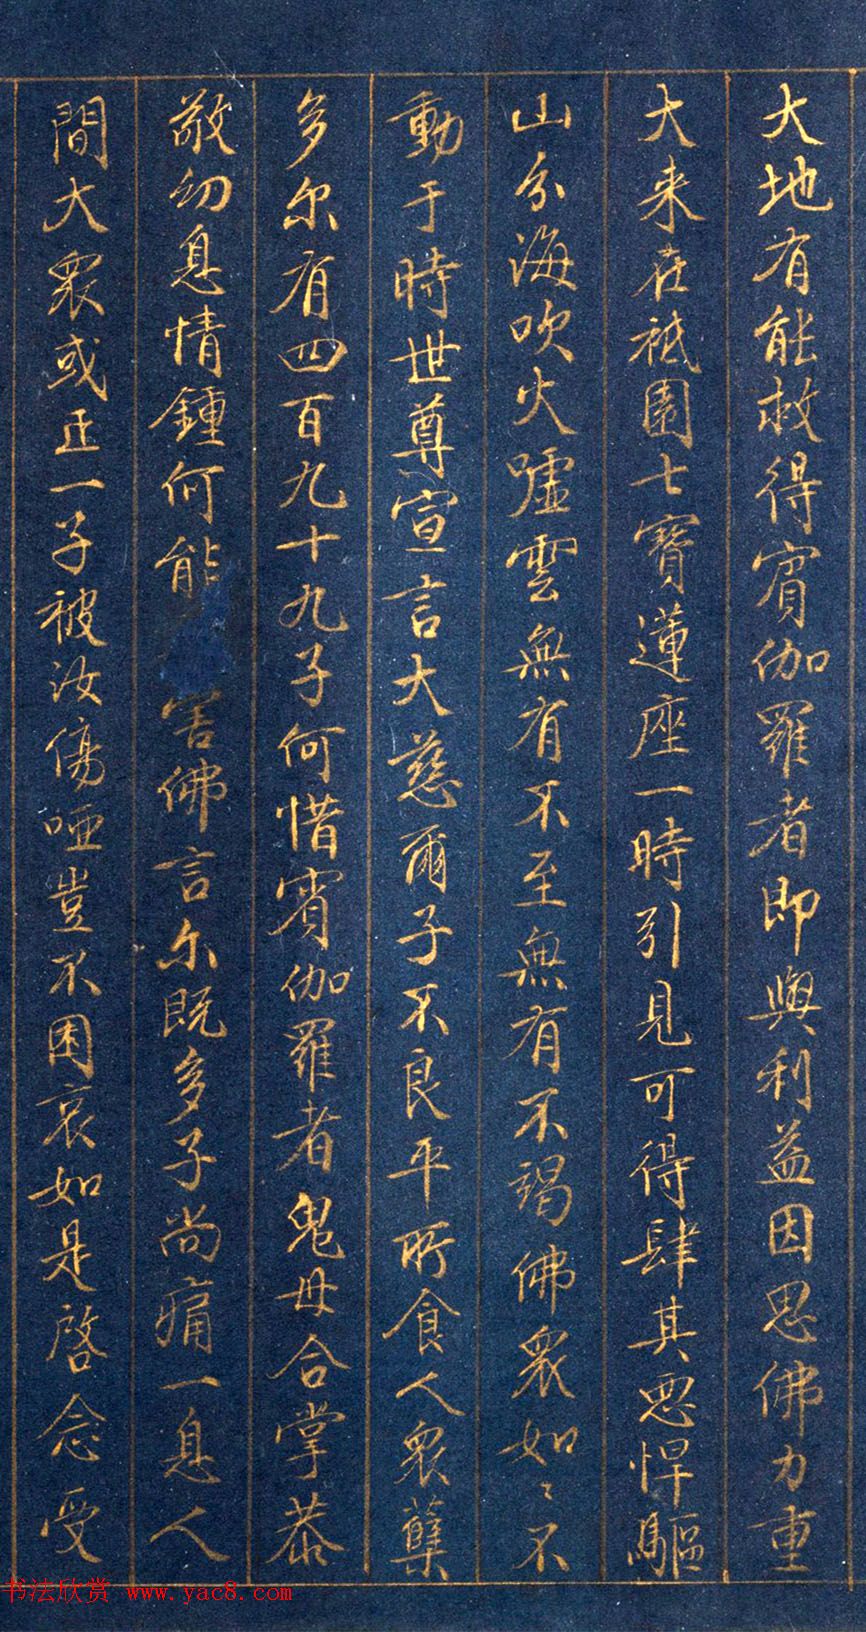 大地有能救得賓伽羅者即與利益因思佛力重
大来在祇園七寶蓮座一時引見可得肆其惡悍驅
山分海吹火噓雲無有不至無有不竭佛衆如〻不
動于時世尊宣言大慈爾子不良平所食人衆蘖
多尔有四百九十九子何惜賓伽羅者鬼母合掌恭
敬幼息情鍾何能害佛言尔既多子尚痛一息人
間大衆或正一子被汝傷哑豈不困哀如是啓念受
书法欣赏 www.yac8.com